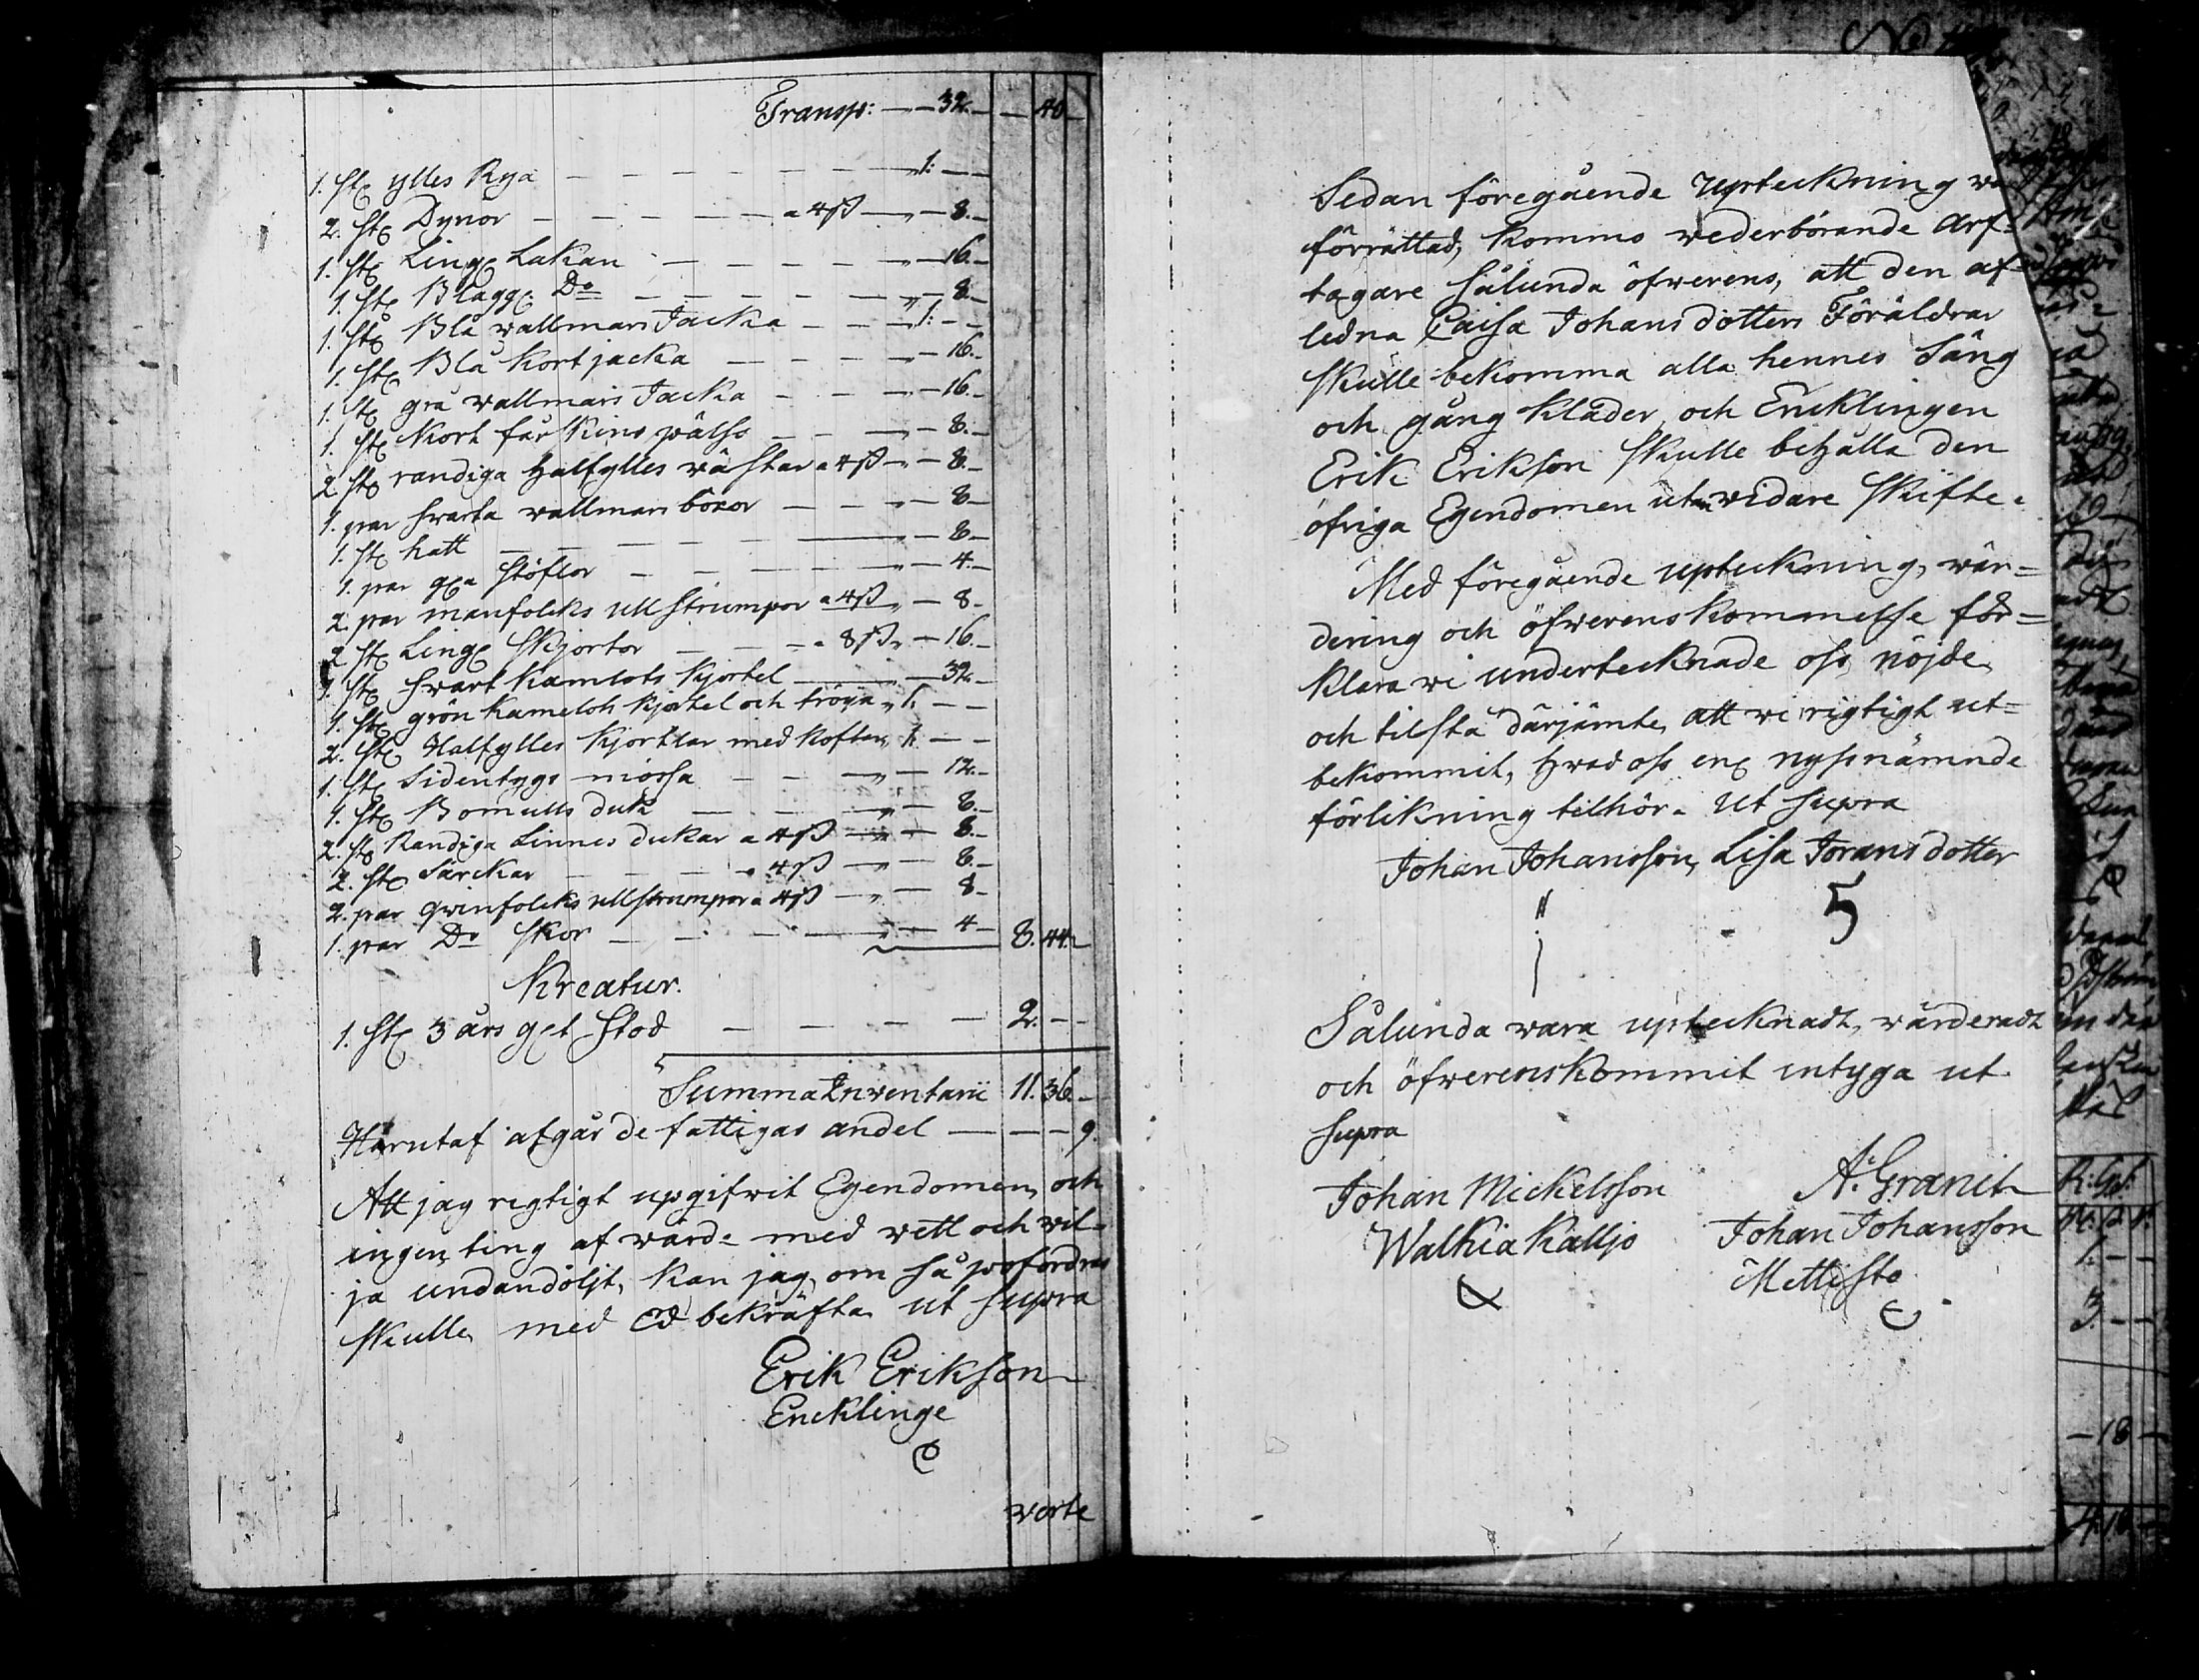 Transp: — — 32. — — 40 —
1. St. ylles Rya — — — — — — — 1: — —
2. St. Dynor — — — — — a 4 ß — „ — 8. —
1. St. Ling. Lakan — — — — — „ — 16. —
1. St. Blagg. Do — — — — — „ — 8. —
1. St. Blå vallmars Jacka — — — „ 1: — —
1. St. Blå Kort jacka — — — — „ — 16. —
1. St. grå vallmars Jacka — — „ — 16. —
1. St. Kort får Skins pälss — — „ — 8. —
2 St. randiga Halfylles västar a 4 ß — „ — 8. —
1. par svarta vallmars böxor — — „ — 8 —
1. St. hatt — — — — — — „ — 8 —
1. par gla Stöflor — — — — „ — 4. —
2. par manfolcks ull strumpor a 4 ß „ — 8 —
2 St. Ling. Skjortor — — — a 8 ß „ — 16. —
1. St. Svart Kamlots Kjortel — „ — 32. —
1. St. grön Kamelots Kjortel och tröya „ 1. — —
2. St. Halfylles Kjortlar med Koftor „ 1. — —
1. St. Sidentygs mössa — — „ — 12. —
1. St. Bomulls duk — — — „ — 8. —
2. St. Randiga Linnes dukar a 4 ß — „ — 8. —
2. St. Särckar — — — a 4 ß — „ — 8. —
2. par qvinfolcks ullstrumpor a 4 ß — „ — 8 —
1. par Do Skor — — — — „ — 4 — 8. 44. —
Kreatur.
1. St. 3 års glt Stod — — — — — 2. — —
Summa Inventarii 11. 36. —
Härutaf afgår de fattigas andel — — — 9.
Att jag rigtigt upgifvit Egendomen, och
ingen ting af värde med vett och vil=
ja undandöljt, kan jag, om så påfordras
skulle, med Ed bekräfta ut supra
Erik Erikson
Encklinge
verte
Sedan föregående upteckning va
förrättad, kommo vederbörande Arf=
tagare sålunda öfverens, att den af=
ledna Caisa Johansdotters Föräldrar
skulle bekomma alla hennes Säng
och gång kläder, och Enklingen
Erik Erikson skulle behålla den
öfriga Egendomen utan vidare skifte.
Med föregående upteckning, vär=
dering och öfverenskommelse för=
klara vi undertecknade oss nöjde,
och tilstå därjämte, att vi rigtigt ut=
bekommit, hvad oss enl. nyssnämnde
förlikning tilhör. Ut supra
Johan Johansson, Lisa Joransdotter
5
Sålunda vara uptecknadt, värderadt
och öfverenskommit intyga ut
supra
Johan Mickelsson A: Granit
Walkiakalljo Johan Johansson
Mettisto